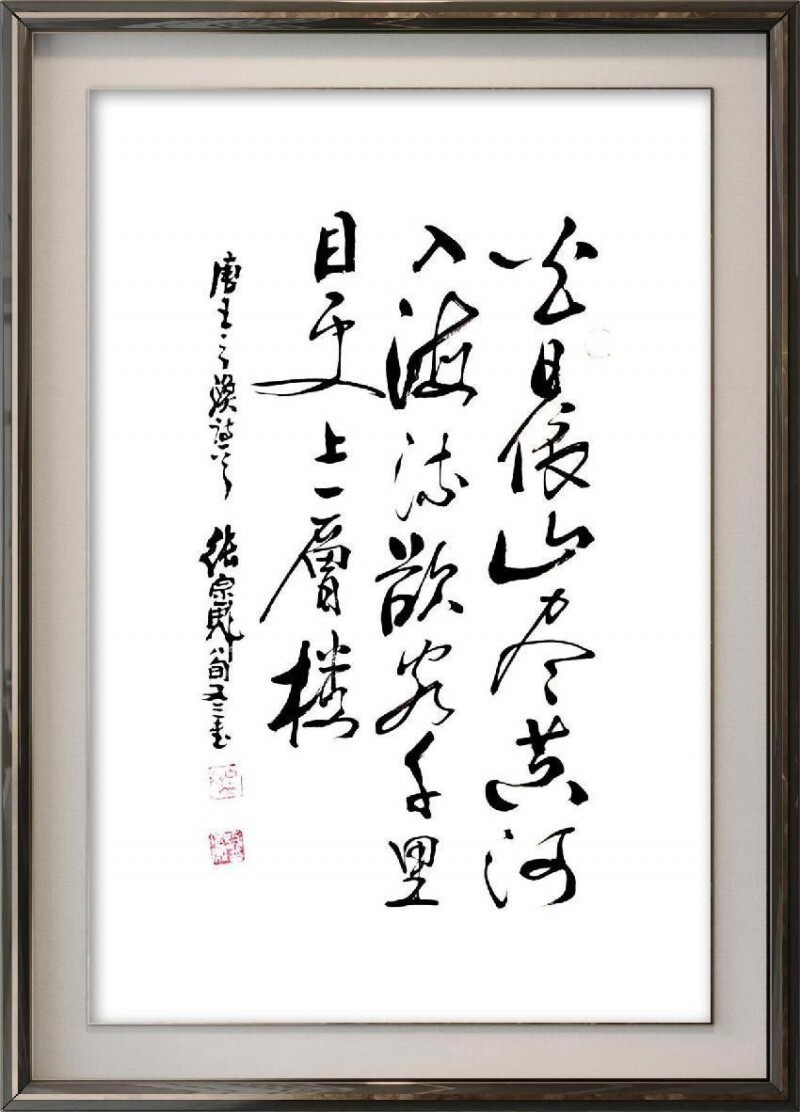 白日依山尽黄河
入海流欲穷千里
目更上一層楼
唐王之涣诗一首 張宗彪八旬又二书